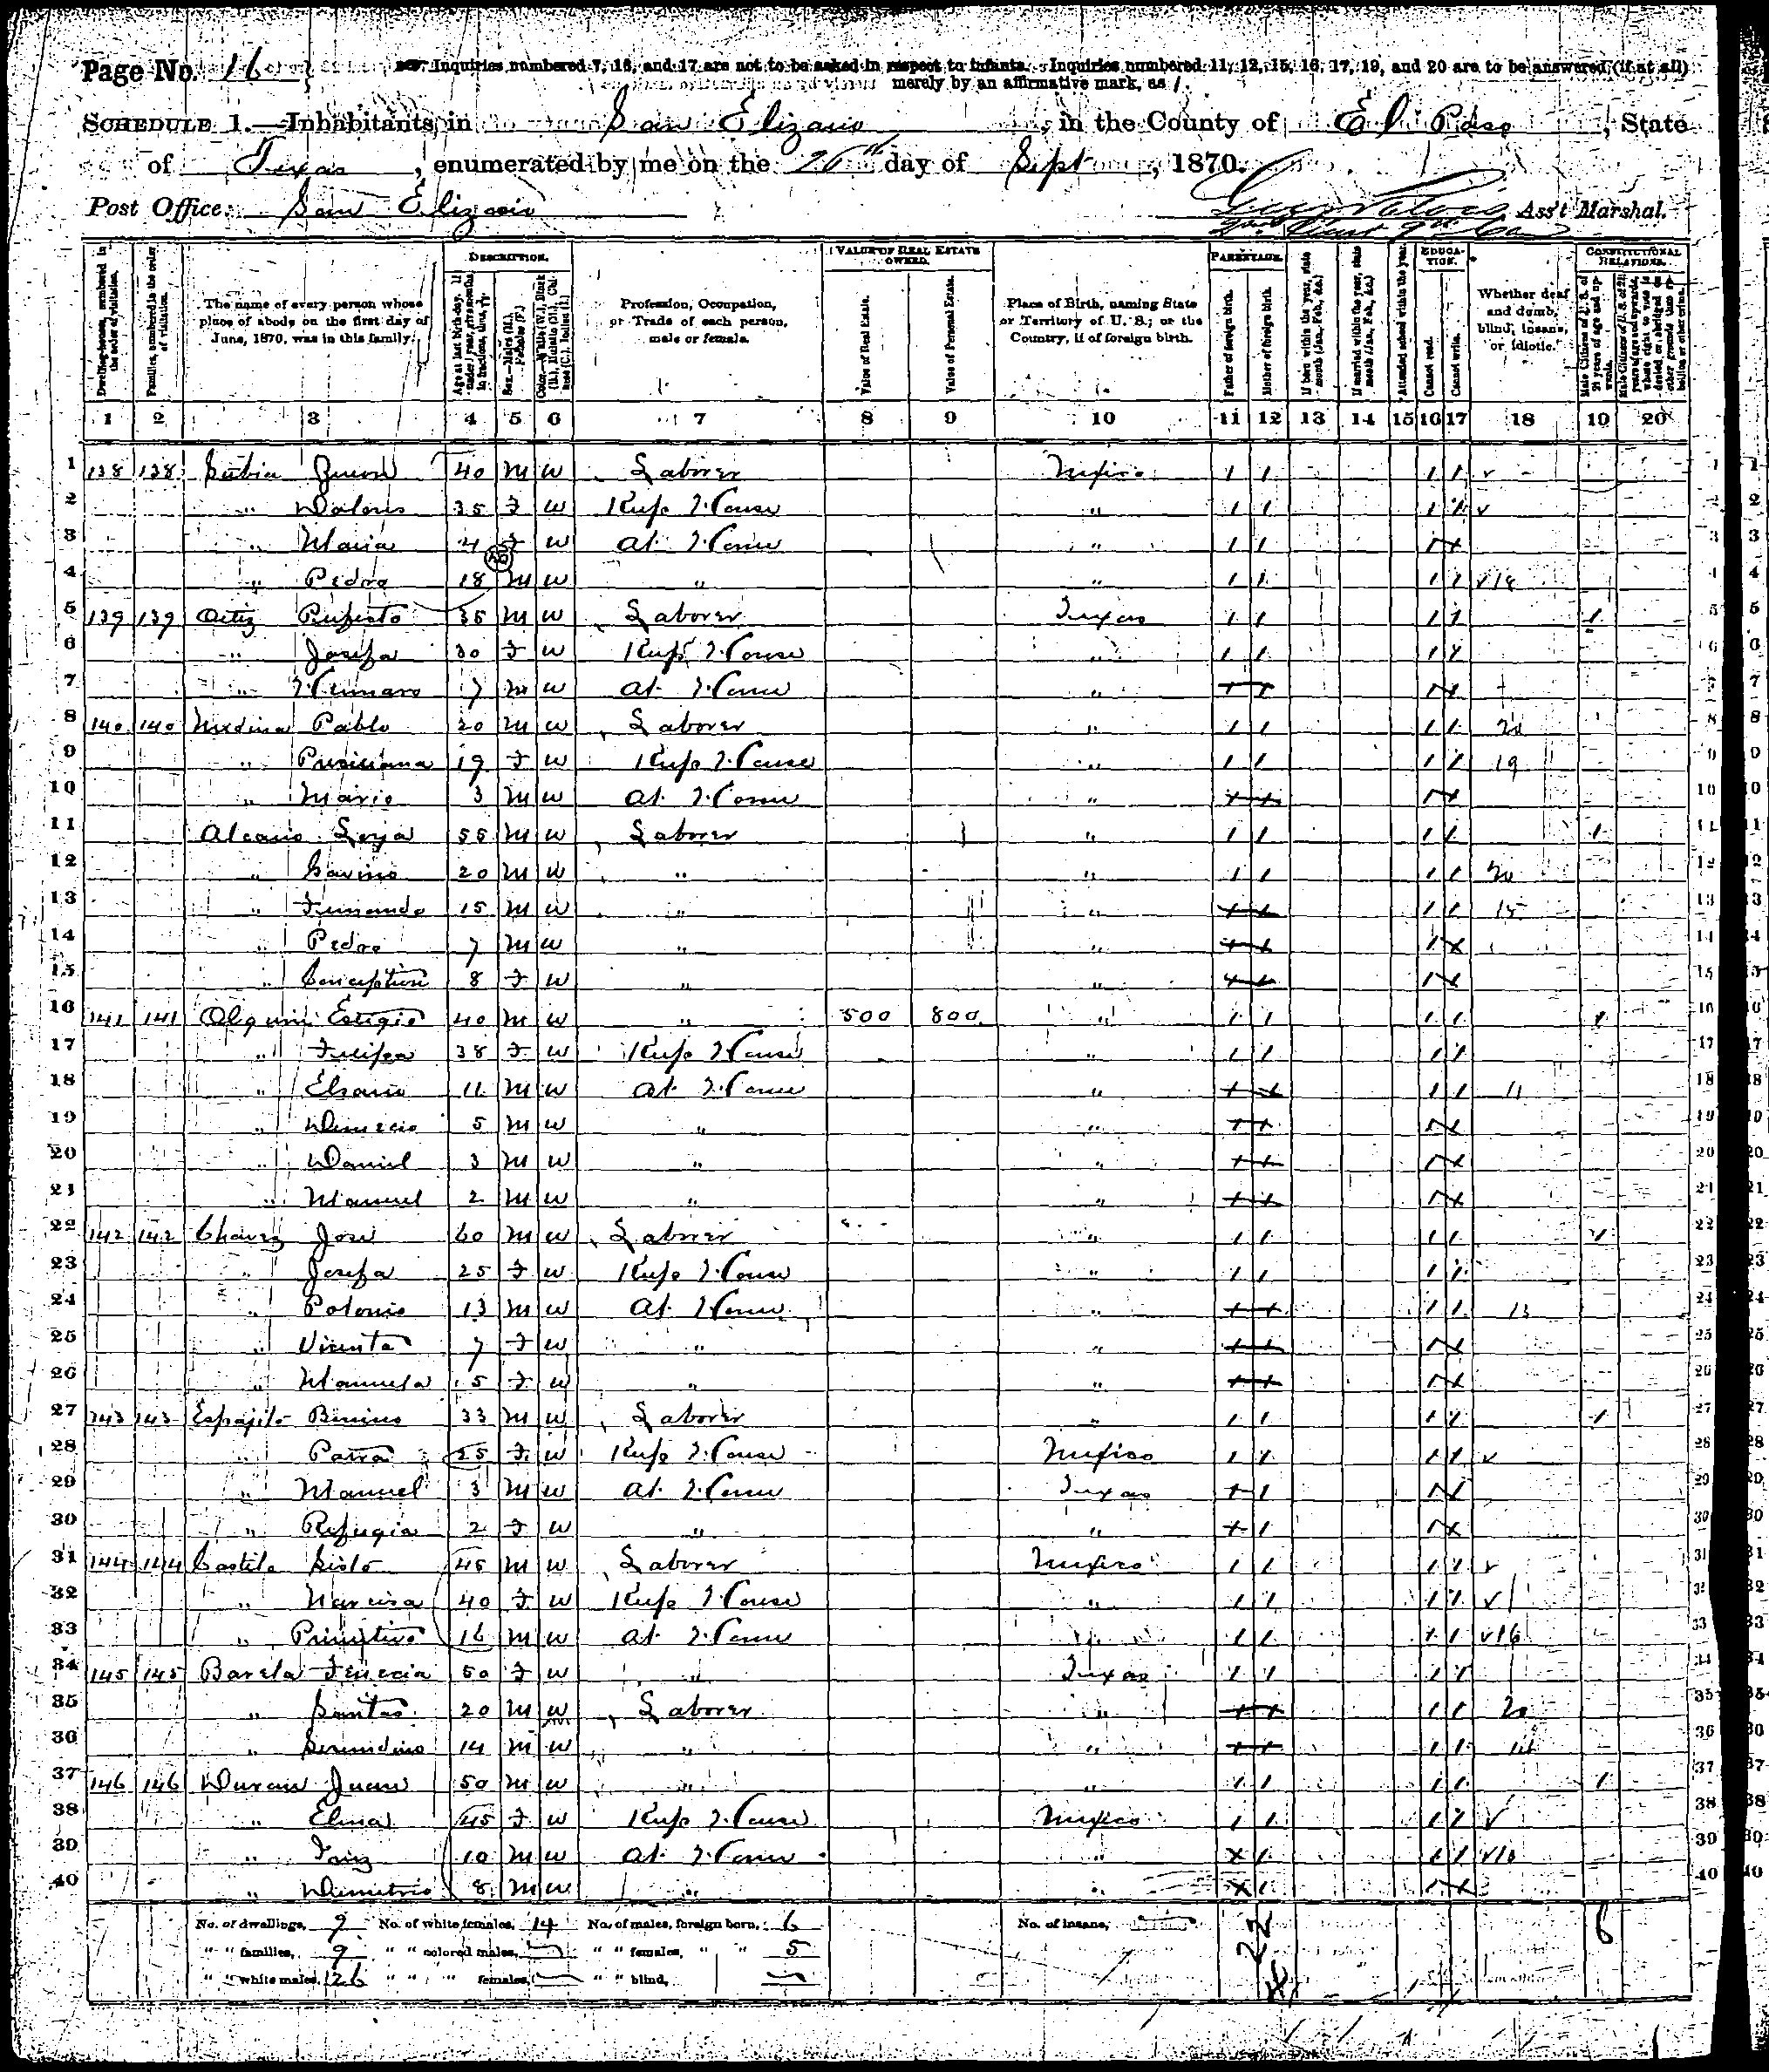 Page No. 16
Inquiries numbered 7, 16, and 17 are not to be asked in respect to infants. Inquiries numbered 11, 12, 15, 16, 17, 19, and 20 are to be answered (if at all)
merely by an affirmative mark, as /.
SCHEDULE 1.—Inhabitants in San Elizario, in the County of El Paso, State
of Texas, enumerated by me on the 26th day of Sept, 1870.
Post Office: San Elizario Ass't Marshal.
DESCRIPTION. VALUE OF REAL ESTATE OWNED. PARENTAGE. EDUCATION. CONSTITUTIONAL RELATIONS.
Dwelling-houses, numbered in the order of visitation.
Families, numbered in the order of visitation.
The name of every person whose place of abode on the first day of June, 1870, was in this family.
Age at last birth-day. If under 1 year, give months in fractions, thus, 3/12.
Sex.—Males (M.), Females (F.)
Color.—White (W.), Black (B.), Mulatto (M.), Chinese (C.), Indian (I.)
Profession, Occupation, or Trade of each person, male or female.
Value of Real Estate.
Value of Personal Estate.
Place of Birth, naming State or Territory of U. S.; or the Country, if of foreign birth.
Father of foreign birth.
Mother of foreign birth.
If born within the year, state month (Jan., Feb., &c.)
If married within the year, state month (Jan., Feb., &c.)
Attended school within the year.
Cannot read.
Cannot write.
Whether deaf and dumb, blind, insane, or idiotic.
Male Citizens of U. S. of 21 years of age and upwards.
Male Citizens of U. S. of 21 years of age and upwards, whose right to vote is denied or abridged on other grounds than rebellion or other crime.
1 2 3 4 5 6 7 8 9 10 11 12 13 14 15 16 17 18 19 20
1 138 138 Subia Juan 40 M W Laborer Mexico / / / / 1
2 " Dolores 35 F W Keeps House " / / / / 2
3 " Maria 4 F W At Home " / / 3
4 " Pedro 18 M W " " / / / / 18 4
5 139 139 Ortiz Ruperto 35 M W Laborer Texas / / / / / 5
6 " Josefa 30 F W Keeps House " / / / / 6
7 " 7 M W At Home " 7
8 140 140 Medina Pablo 20 M W Laborer " / / / / 20 8
9 " 19 F W Keeps House " / / / / 19 9
10 " Mario 3 M W At Home " 10
11 55 M W Laborer " / / / / / 11
12 " Savino 20 M W " " / / / / 20 12
13 " Fernando 15 M W " " / / 15 13
14 " Pedro 7 M W " " 14
15 " Conception 8 F W " " 15
16 141 141 Olguin 40 M W " 500 800 " / / / / / 16
17 " Felipa 38 F W Keeps House " / / / / 17
18 " 11 M W At Home " / / 11 18
19 " 5 M W " " 19
20 " Daniel 3 M W " " 20
21 " Manuel 2 M W " " 21
22 142 142 Chavez Jose 60 M W Laborer " / / / / / 22
23 " Josefa 25 F W Keeps House " / / / / 23
24 " Polonio 13 M W At Home " / / 13 24
25 " Vicenta 7 F W " " 25
26 " Manuela 5 F W " " 26
27 143 143 33 M W Laborer " / / / / / 27
28 " 25 F W Keeps House Mexico / / / / 28
29 " Manuel 3 M W At Home Texas 29
30 " Refugia 2 F W " " 30
31 144 144 Castilo Sisto 45 M W Laborer Mexico / / / / 31
32 " Narcisa 40 F W Keeps House " / / / / 32
33 " Primitivo 16 M W At Home " / / / / 16 33
34 145 145 Barela 50 F W " Texas / / / / 34
35 " Santos 20 M W Laborer " / / 20 35
36 " 14 M W " " / / 14 36
37 146 146 Duran Juan 50 M W " " / / / / / 37
38 " Elena 45 F W Keeps House Mexico / / / / 38
39 " 10 M W At Home " / / / 10 39
40 " Demetrio 8 M W " " 40
No. of dwellings, 9 No. of white females, 14 No. of males, foreign born, 6 No. of insane,
" " families, 9 " " colored males, " " females, " " 5
" " white males, 26 " " " females, " " blind,
22 6